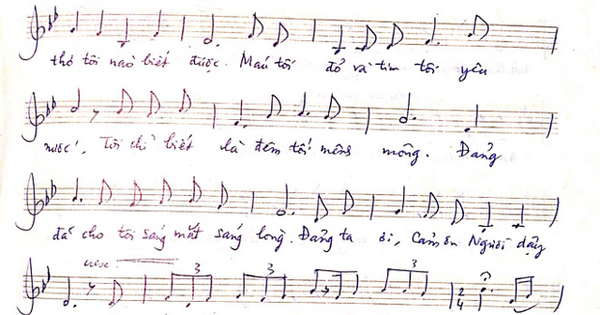 thở tôi nào biết được. Máu tôi đỏ và tim tôi yêu
nước. Tôi chỉ biết là đêm tối mênh mông. Đảng
đã cho tôi sáng mắt sáng lòng. Đảng ta ơi, Cảm ơn Người dạy
cresc
3 3 3
2
4